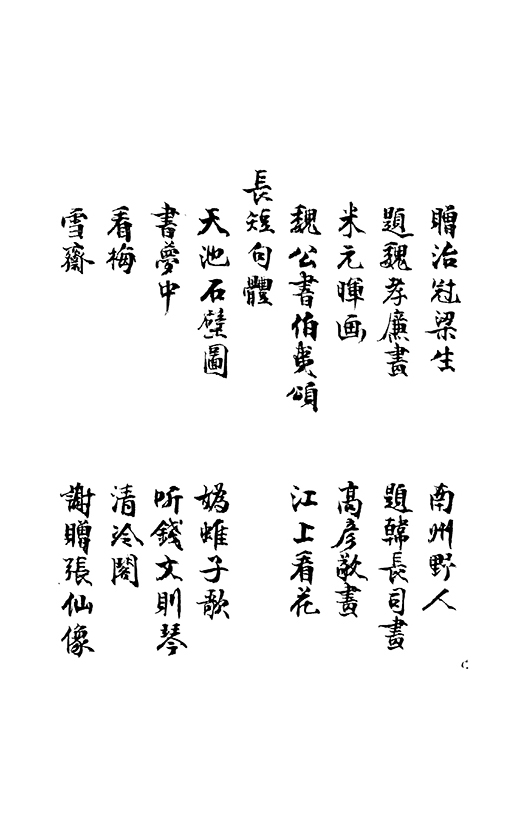 贈治冠梁生 南州野人
題魏孝廉畫 題韓長司畫
米元暉画 高彦敬畫
魏公書伯夷頌 江上看花
長短句體
天池石壁圖 媯蜼子歌
書夢中 听錢文則琴
看梅 清泠閣
雪齋 謝贈張仙像